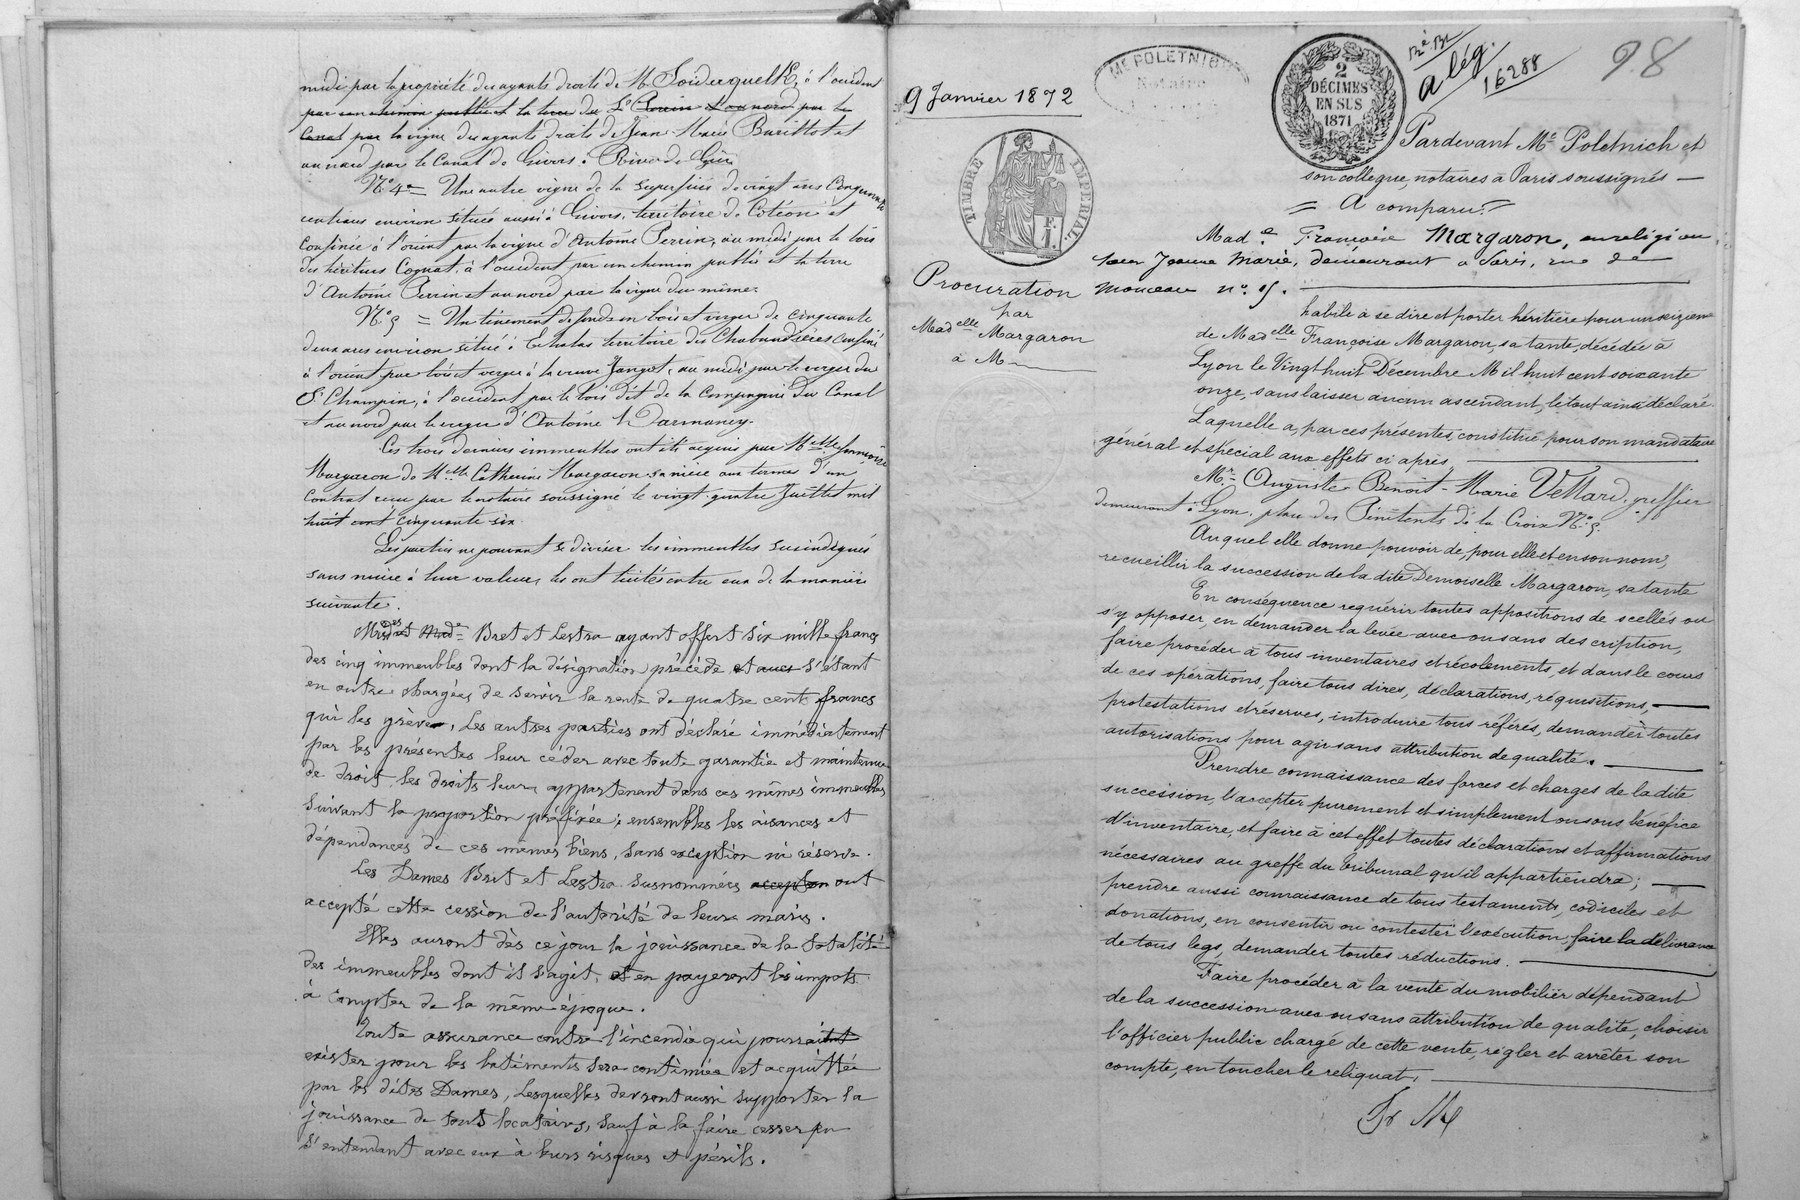 midi par la propriété des ayants droits de M. à l'occident
par un chemin public et la terre du Sr Perrin et au nord par le
Canal par la vigne des ayants droits de Jean Marie Burittot et
au nord par le Canal de Givors à Rive de Gier
N° 4° = Une autre vigne de la superficie de vingt ares Cinquante
centiares environ située aussi à Givors, territoire de Cotéon et
confinée à l'orient par la vigne d'Antoine Perrin, au midi par le bois
des héritiers Cognat, à l'occident par un chemin public et la terre
d'Antoine Perrin et au nord par la vigne du même.
N° 5 = Un tinement de fonds en bois et verger de cinquante
deux ares environ situé à Echalas territoire des Chabaudières confiné
à l'orient par bois et verger à la veuve Jangot, au midi par le verger du
Sr Champin, à l'occident par le bois dit de la Compagnie du Canal
et au nord par le verger d'Antoine Darmancy.
Ces trois derniers immeubles ont été acquis par Melle Françoise
Margaron de Melle Catherine Margaron sa nièce aux termes d'un
contrat reçu par le notaire soussigné le vingt-quatre Juillet mil
huit cent cinquante six.
Les parties ne pouvant se diviser les immeubles susindiqués
sans nuire à leur valeur, les ont licités entre eux de la manière
suivante.
Mesdes et Made Bret et Lestra ayant offert six mille francs
des cinq immeubles dont la désignation précède et avec s'étant
en outre chargées de servir la rente de quatre cent francs
qui les grève, les autres parties ont déclaré immédiatement
par les présentes leur céder avec toute garantie et maintenue
de droit les droits leur appartenant dans ces mêmes immeubles
suivant la proportion préfixée; ensembles les aisances et
dépendances de ces mêmes biens, sans exception ni réserve.
Les Dames Bret et Lestra susnommées acceptan ont
accepté cette cession de l'autorité de leurs maris.
Elles auront dès ce jour la jouissance de la totalité
des immeubles dont il s'agit, et en payeront les impots
à compter de la même époque.
Toute assurance contre l'incendie qui pourrait
exister pour les bâtiments sera continuée et acquittée
par les dites Dames, lesquelles devront aussi supporter la
jouissance de tous locataires, sauf à la faire cesser en
s'entendant avec eux à leurs risques et périls.
9 Janvier 1872
Me POLETNICH
Notaire
2
DÉCIMES
EN SUS
1871
a lég.
16288
98
TIMBRE IMPERIAL
F
1.
Procuration
par
Madelle Margaron
à M
Pardevant Me Poletnich et
son collegue, notaires à Paris soussignés
= A comparu: =
Made Françoise Margaron, en religion
sœur Jeanne Marie, demeurant à Paris, rue de
Monceau n° 15.
habile à se dire et porter héritière pour un seizième
de Madelle Françoise Margaron, sa tante, décédée à
Lyon le Vingt huit Décembre Mil huit cent soixante
onze, sans laisser aucun ascendant, le tout ainsi déclaré.
Laquelle a, par ces présentes, constitué pour son mandataire
général et spécial aux effets ci après,
Mr Auguste Benoit-Marie Vettard, greffier
demeurant à Lyon, place des Pénitents de la Croix N° 5.
Auquel elle donne pouvoir de, pour elle et en son nom,
recueillir la succession de la dite Demoiselle Margaron, sa tante
En conséquence requérir toutes appositions de scellés ou
s'y opposer, en demander la levée avec ou sans description,
faire procéder à tous inventaires et récolements, et dans le cours
de ces opérations, faire tous dires, déclarations, réquisitions,
protestations et réserves, introduire tous référés, demander toutes
autorisations pour agir sans attribution de qualité.
Prendre connaissance des forces et charges de la dite
succession, l'accepter purement et simplement ou sous bénéfice
d'inventaire, et faire à cet effet toutes déclarations et affirmations
nécessaires au greffe du tribunal qu'il appartiendra;
prendre aussi connaissance de tous testaments, codiciles et
donations, en consentir ou contester l'exécution, faire la délivrance
de tous legs, demander toutes réductions.
Faire procéder à la vente du mobilier dépendant
de la succession avec ou sans attribution de qualité, choisir
l'officier public chargé de cette vente, régler et arrêter son
compte, en toucher le reliquat.
Fr M